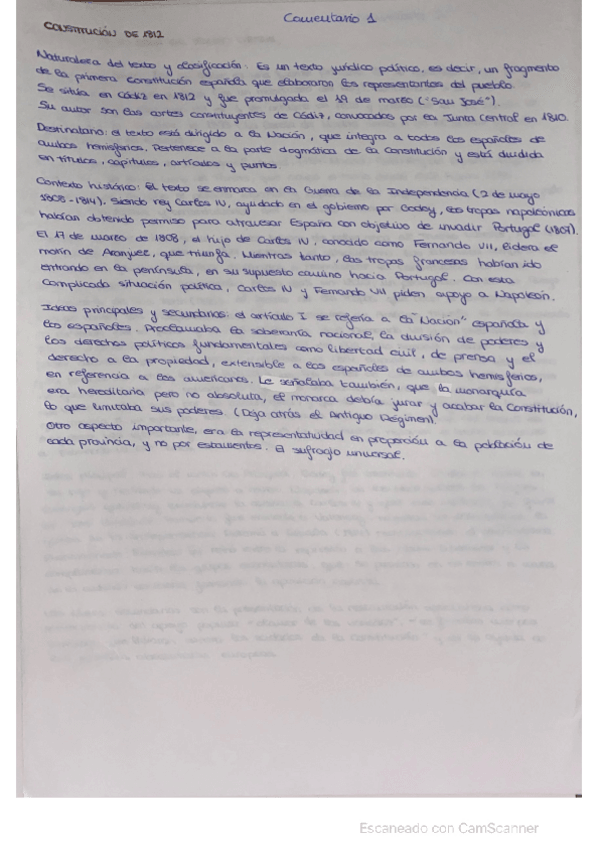 Comentario 1
CONSTITUCIÓN DE 1812
Naturaleza del texto y clasificación: Es un texto jurídico político, es decir, un fragmento
de la primera Constitución española que elaboraron los representantes del pueblo.
Se sitúa en Cádiz en 1812 y fue promulgada el 19 de marzo ("San José").
Su autor son las cortes constituyentes de Cádiz, convocadas por la Junta Central en 1810.
Destinatario: el texto está dirigido a la Nación, que integra a todos los españoles de
ambos hemisferios. Pertenece a la parte dogmática de la Constitución y está dividida
en títulos, capítulos, artículos y puntos.
Contexto histórico: El texto se enmarca en la Guerra de la Independencia (2 de mayo
1808-1814). Siendo rey Carlos IV, ayudado en el gobierno por Godoy, las tropas napoleónicas
habían obtenido permiso para atravesar España con objetivo de invadir Portugal (1807).
El 17 de marzo de 1808, el hijo de Carlos IV, conocido como Fernando VII, lidera el
motín de Aranjuez, que triunfa. Mientras tanto, las tropas francesas habían ido
entrando en la península, en su supuesto camino hacia Portugal. Con esta
complicada situación política, Carlos IV y Fernando VII piden apoyo a Napoleón.
Ideas principales y secundarias: el artículo I se refería a la "Nación" española y
los españoles. Proclamaba la soberanía nacional, la división de poderes y
los derechos políticos fundamentales como libertad civil, de prensa y el
derecho a la propiedad, extensible a los españoles de ambos hemisferios,
en referencia a los americanos. Le señalaba también, que la monarquía
era hereditaria pero no absoluta, el monarca debía jurar y acatar la Constitución,
lo que limitaba sus poderes. (Deja atrás el Antiguo Régimen).
Otro aspecto importante, era la representatividad en proporción a la población de
cada provincia, y no por estamentos. El sufragio universal.
Escaneado con CamScanner